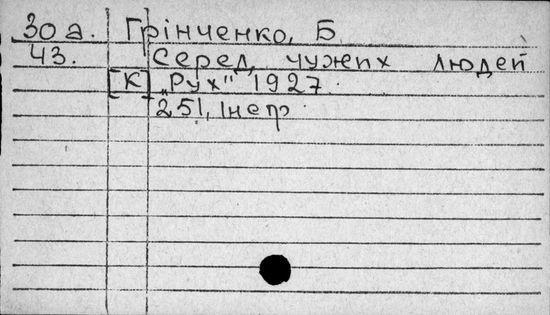 30а. Грінченко, Б
43. Серед чужих людей
[К] „Рух" 1927.
251, 1 непр.